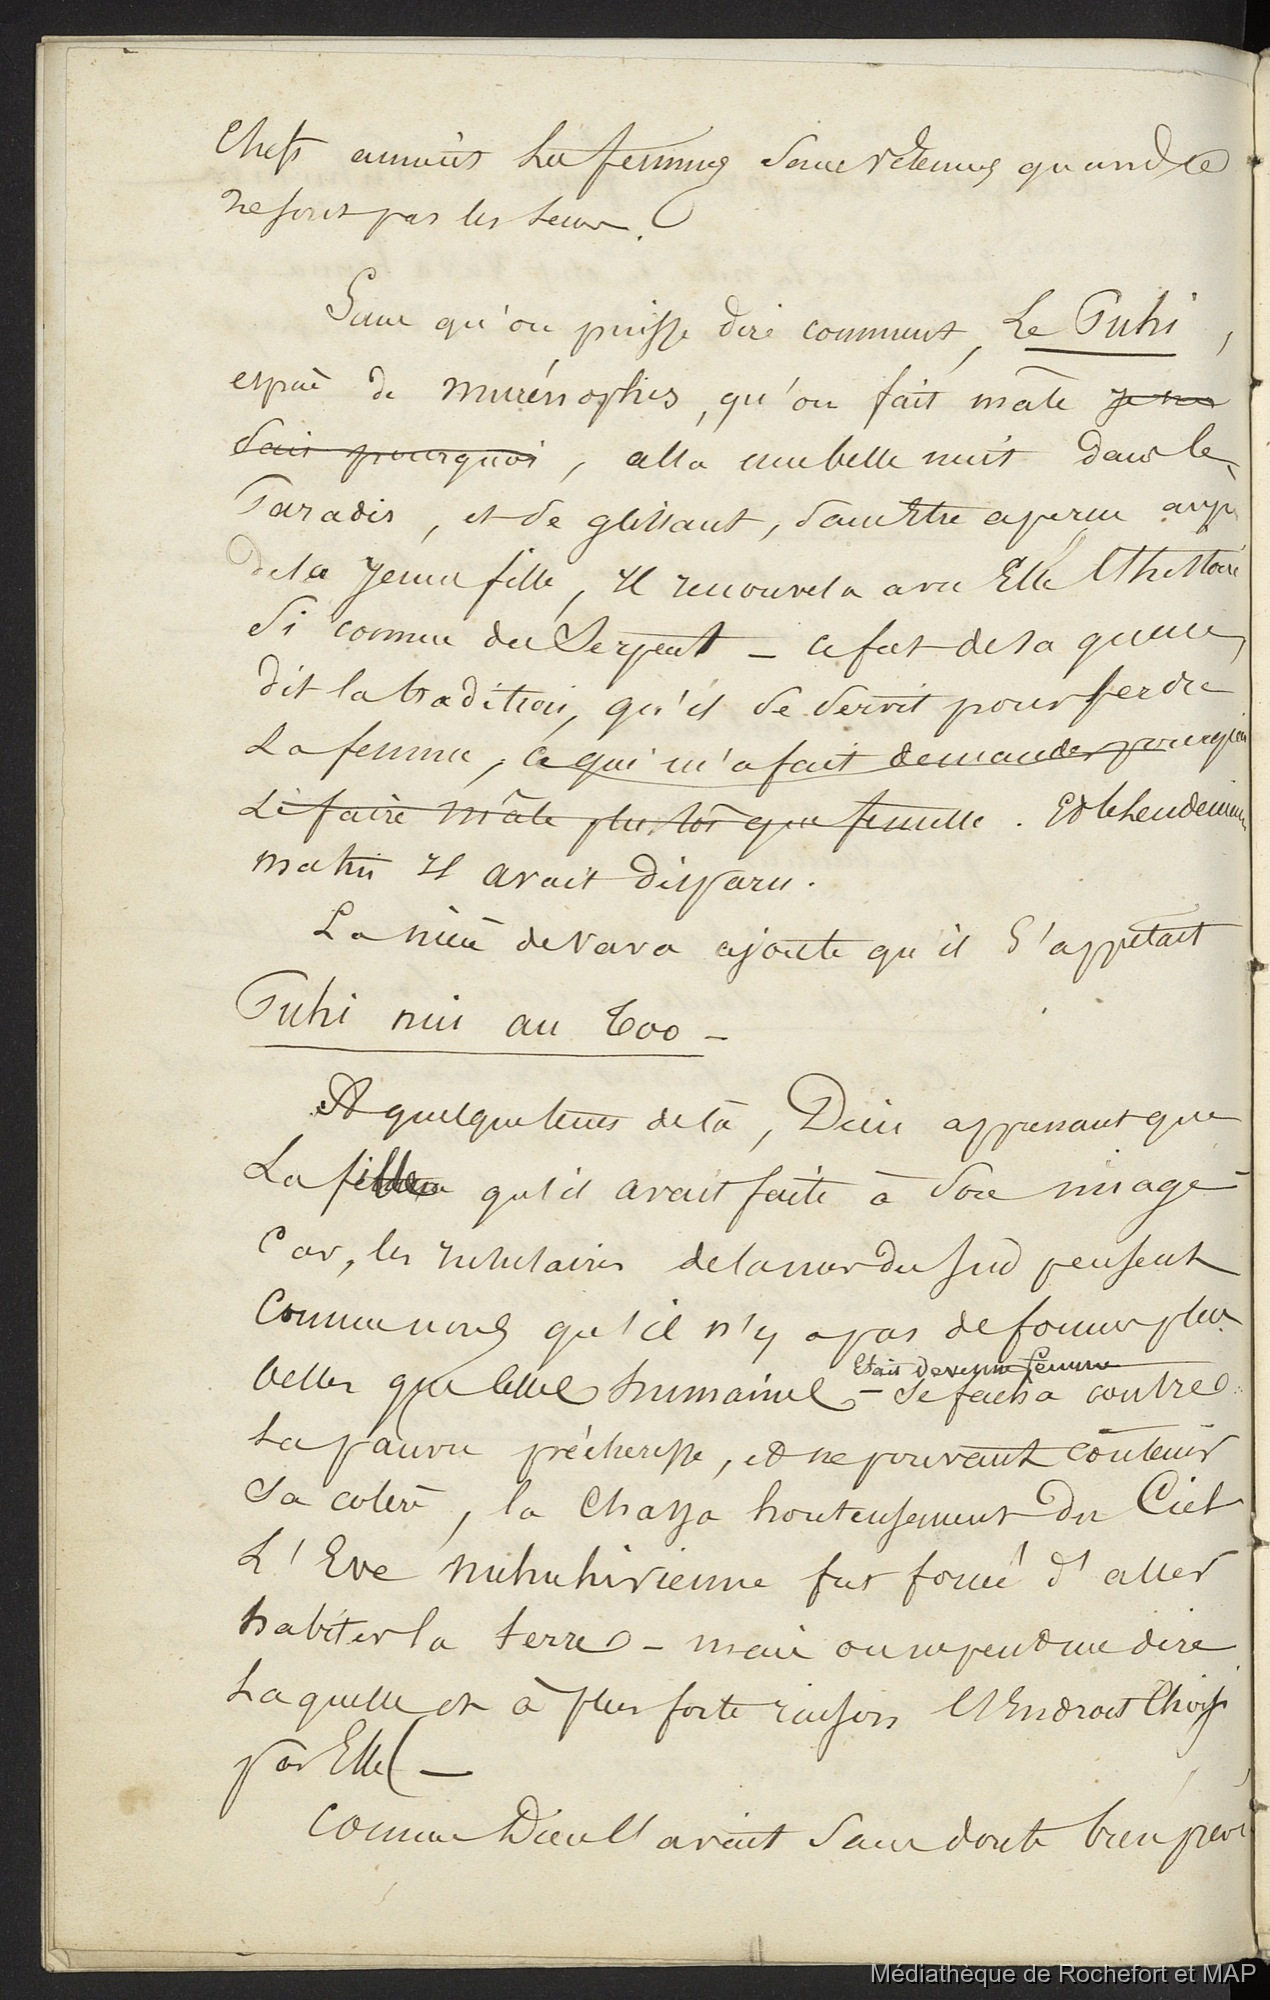 Chefs amants la femme quand ce
ne sont pas les leurs.
Sans qu'on puisse dire comment, Le Puhi,
espèce de murénophis, qu'on fait mâle je ne
sais pourquoi, alla une belle nuit dans le
Paradis, et se glissant, sans être aperçu auprès
de la jeune fille, il renouvela avec Elle l'histoire
si connue du Serpent - ce fut de sa queue,
dit la tradition, qu'il se servit pour perdre
La femme, ce qui m'a fait demander pourquoi
Le faire mâle plutôt que femelle. Et le lendemain
matin il avait disparu.
La nièce de Vava ajoute qu'il s'appelait
Puhi nui au Too -
A quelque tems de là, Dieu apprenant que
La fille qu'il avait faite à son image
Car, les insulaires de la mer du sud pensent
Comme nous qu'il n'y a pas de formes plus
belles que celles humaines - était devenue femme
se facha contre
la pauvre pécheresse, et ne pouvant contenir
sa colère, la chassa honteusement du Ciel
L'Eve nukuhivienne fut forcée d'aller
habiter la terre - mais on ne peut me dire
Laquelle et à plus forte raison l'Endroit choisi
par Elle -
Comme Dieu l'avait sans doute bien prévu
Médiathèque de Rochefort et MAP